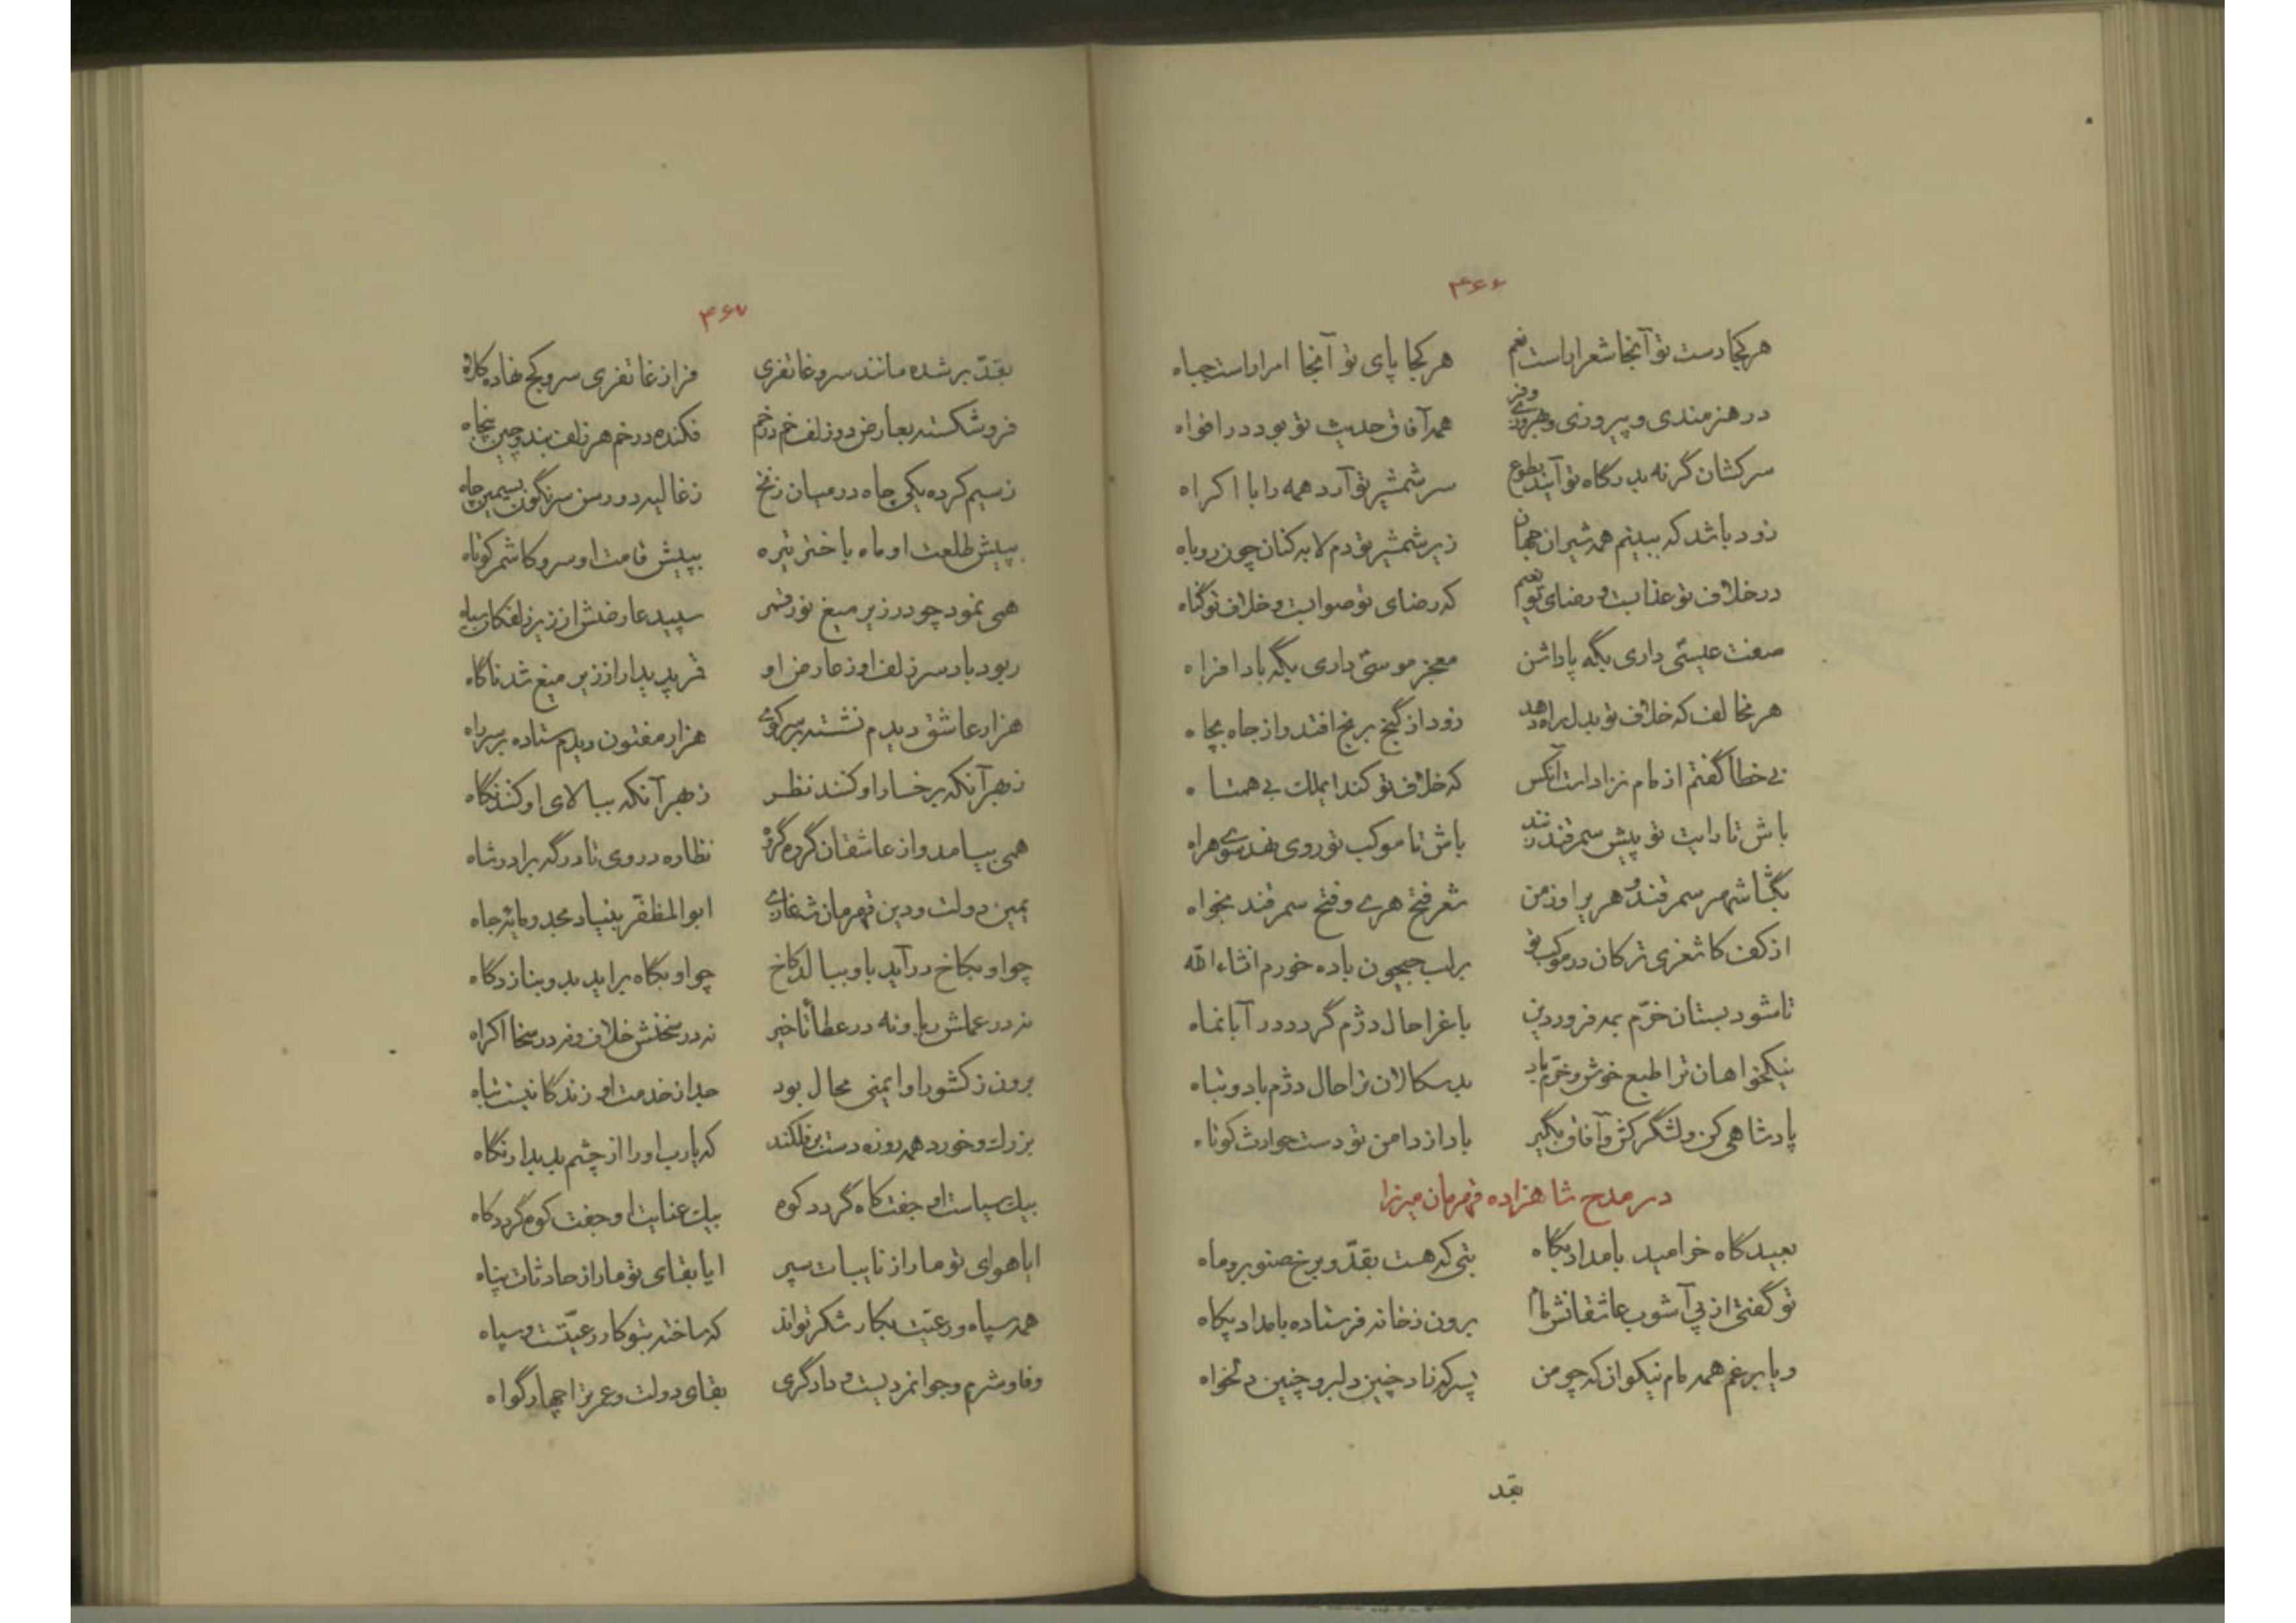 ۴۶۶
هر کجا دست تو آنجا شعرا راست نعم هر کجا پای تو آنجا امرا راست جباه
در هنرمندی و پیروزی و بهروزی و فر همه آفاق حدیث تو بود در افواه
سرکشان گر نه بدرگاه تو آیند بطوع سر شمشیر تو آرد همه را با اکراه
زود باشد که ببینم همه شیران جهان زیر شمشیر تو دم لابه کنان چون روباه
در خلاف تو عذابست و رضای تو نعیم که رضای تو صوابست و خلاف تو گناه
صفت عیسی داری بگه پاداشن معجز موسی داری بگه بادافراه
هر مخالف که خلاف تو بدل راه دهد زود از گنج برنج افتد و از جاه بچاه
نی خطا گفتم از مام نزادست آنکس که خلاف تو کند ایملک بی همتاه
باش تا رایت تو پیش سمرقند زنند باش تا موکب تو روی نهد سوی هراه
بگشا شهر سمرقند و هری را و ز من شعر فتح هری و فتح سمرقند بخواه
از کف کاشغری ترکان در موکب تو بر لب جیحون باده خورم انشاءالله
تا شود بستان خرّم بمه فروردین باغ را حال دژم گردد در آبانماه
نیکخواهان ترا طبع خوش و خرّم باد بدسکالان ترا حال دژم باد و تباه
پادشاهی کن و لشگر کش و آفاق بگیر باد از دامن تو دست حوادث کوتاه
در مدح شاهزاده قهرمان میرزا
بعیدگاه خرامید بامداد پگاه بتی که هست بقدّ و برخ صنوبر و ماه
تو گفتی از پی آشوب عاشقانش مام برون ز خانه فرستاده بامداد پگاه
و یا برغم همه مام نیکوان که چو من پسر که زاد چنین دلبر و چنین دلخواه
بقد
۴۶۷
بقدّ بر شده مانند سرو غاتفری فراز غاتفری سرو کج نهاده کلاه
فرو شکسته بعارض دو زلف خم در خم فکنده در خم هر زلف بند و چین پنجاه
ز سیم کرده یکی چاه در میان زنخ ز غالیه دو رسن سرنگون بسیمین چاه
بپیش طلعت او ماه باختر تیره بپیش قامت او سرو کاشمر کوتاه
همی نمود چو در زیر میغ نور قمر سپید عارضش از زیر زلفکان سیاه
ربود باد سر زلف او ز عارض او قمر پدیدار از زیر میغ شد ناگاه
هزار عاشق دیدم نشسته بر سر کوی هزار مفتون دیدم ستاده بر سر راه
ز بهر آنکه برخسار او کنند نظر ز بهر آنکه ببالای او کنند نگاه
همی بیامد و از عاشقان گروه گروه نظاره در وی تا درگه برادر شاه
یمین دولت و دین قهرمان شه غازی ابوالمظفّر بنیاد مجد و مایه جاه
چو او بکاخ درآید باو ببالد کاخ چو او بگاه براید بدو بنازد گاه
نه در عملش ریا و نه در عطا تأخیر نه در سخنش خلاف و نه در سخا اکراه
برون ز کشور او ایمنی محال بود جدا ز خدمت او زندگانیست تباه
بزرك و خورد همه روزه دست بر فلکند که یا رب او را از چشم بد بدار نگاه
بیك سیاست او جفت کاه گردد کوه بیك عنایت او جفت کوه گردد کاه
ایا هوای تو ما را از نایبات سپر ایا بقای تو ما را ز حادثات پناه
همه سپاه و رعیّت بکار شکر تواند که ساخته بتو کار رعیّت و سپاه
وفا و شرم و جوانمردیست و دادگری بقای دولت و عمر ترا چهار گواه